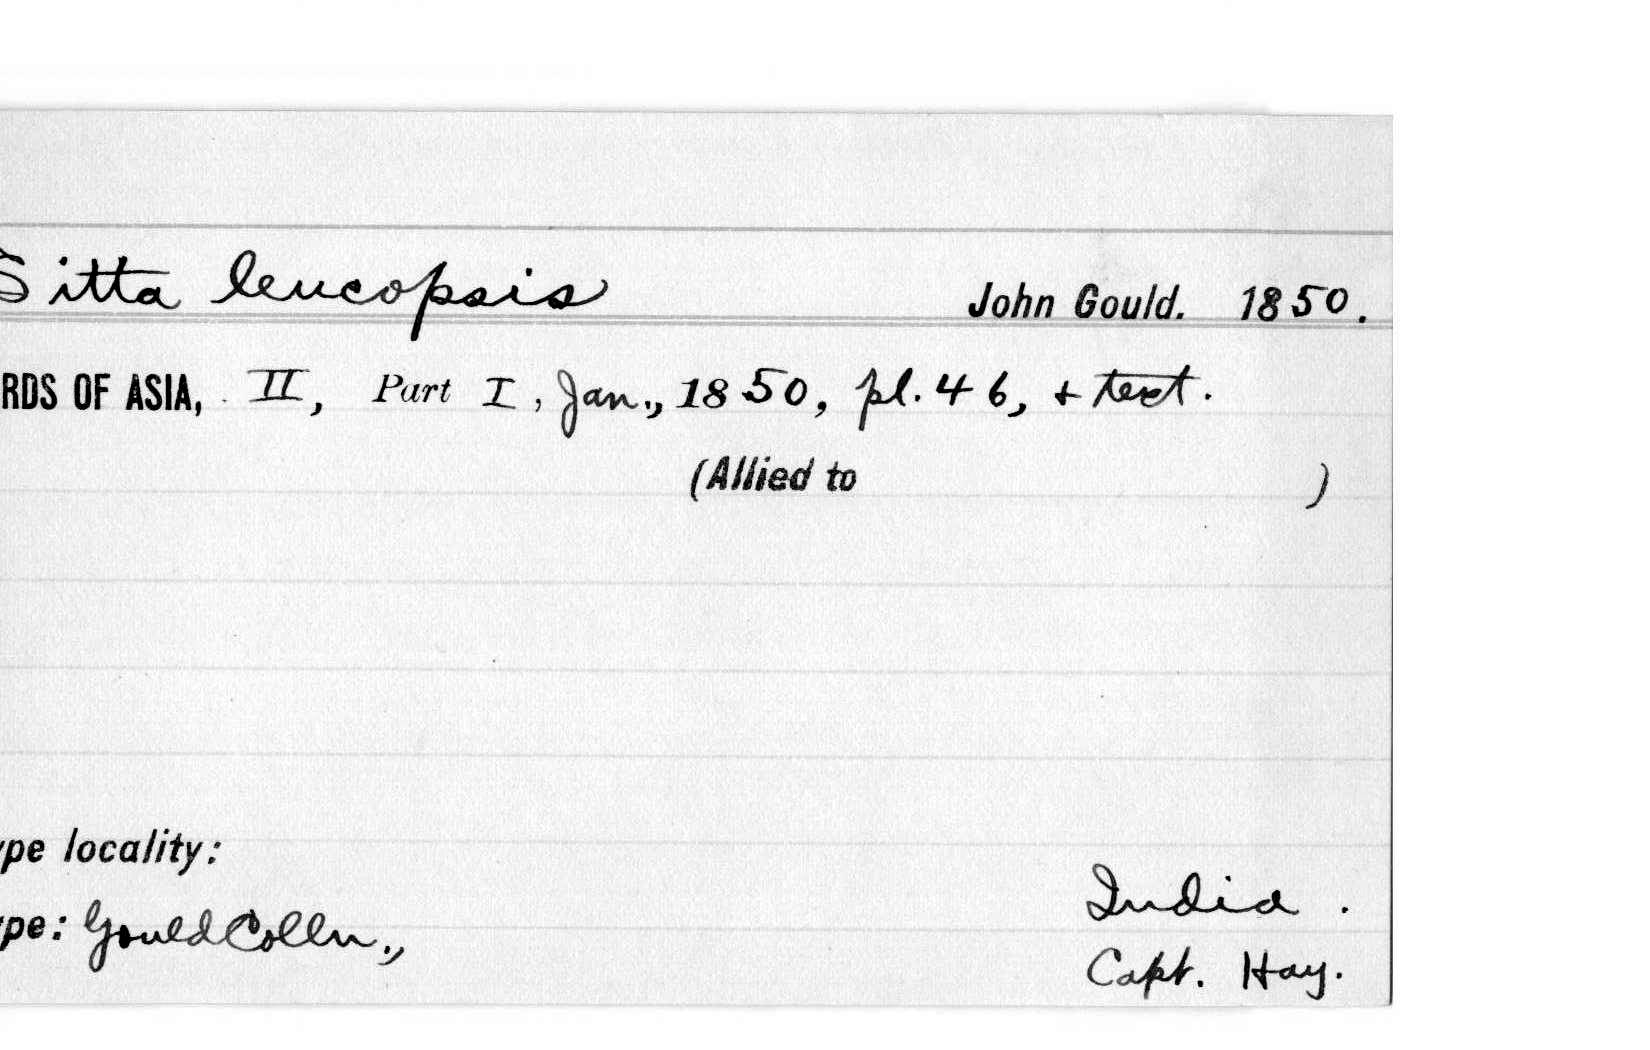 Sitta leucopsis John Gould. 1850.
RDS OF ASIA, II, Part I, Jan., 1850, pl. 46, + text.
(Allied to )
ype locality:
India.
ype: Gould Colln., Capt. Hay.